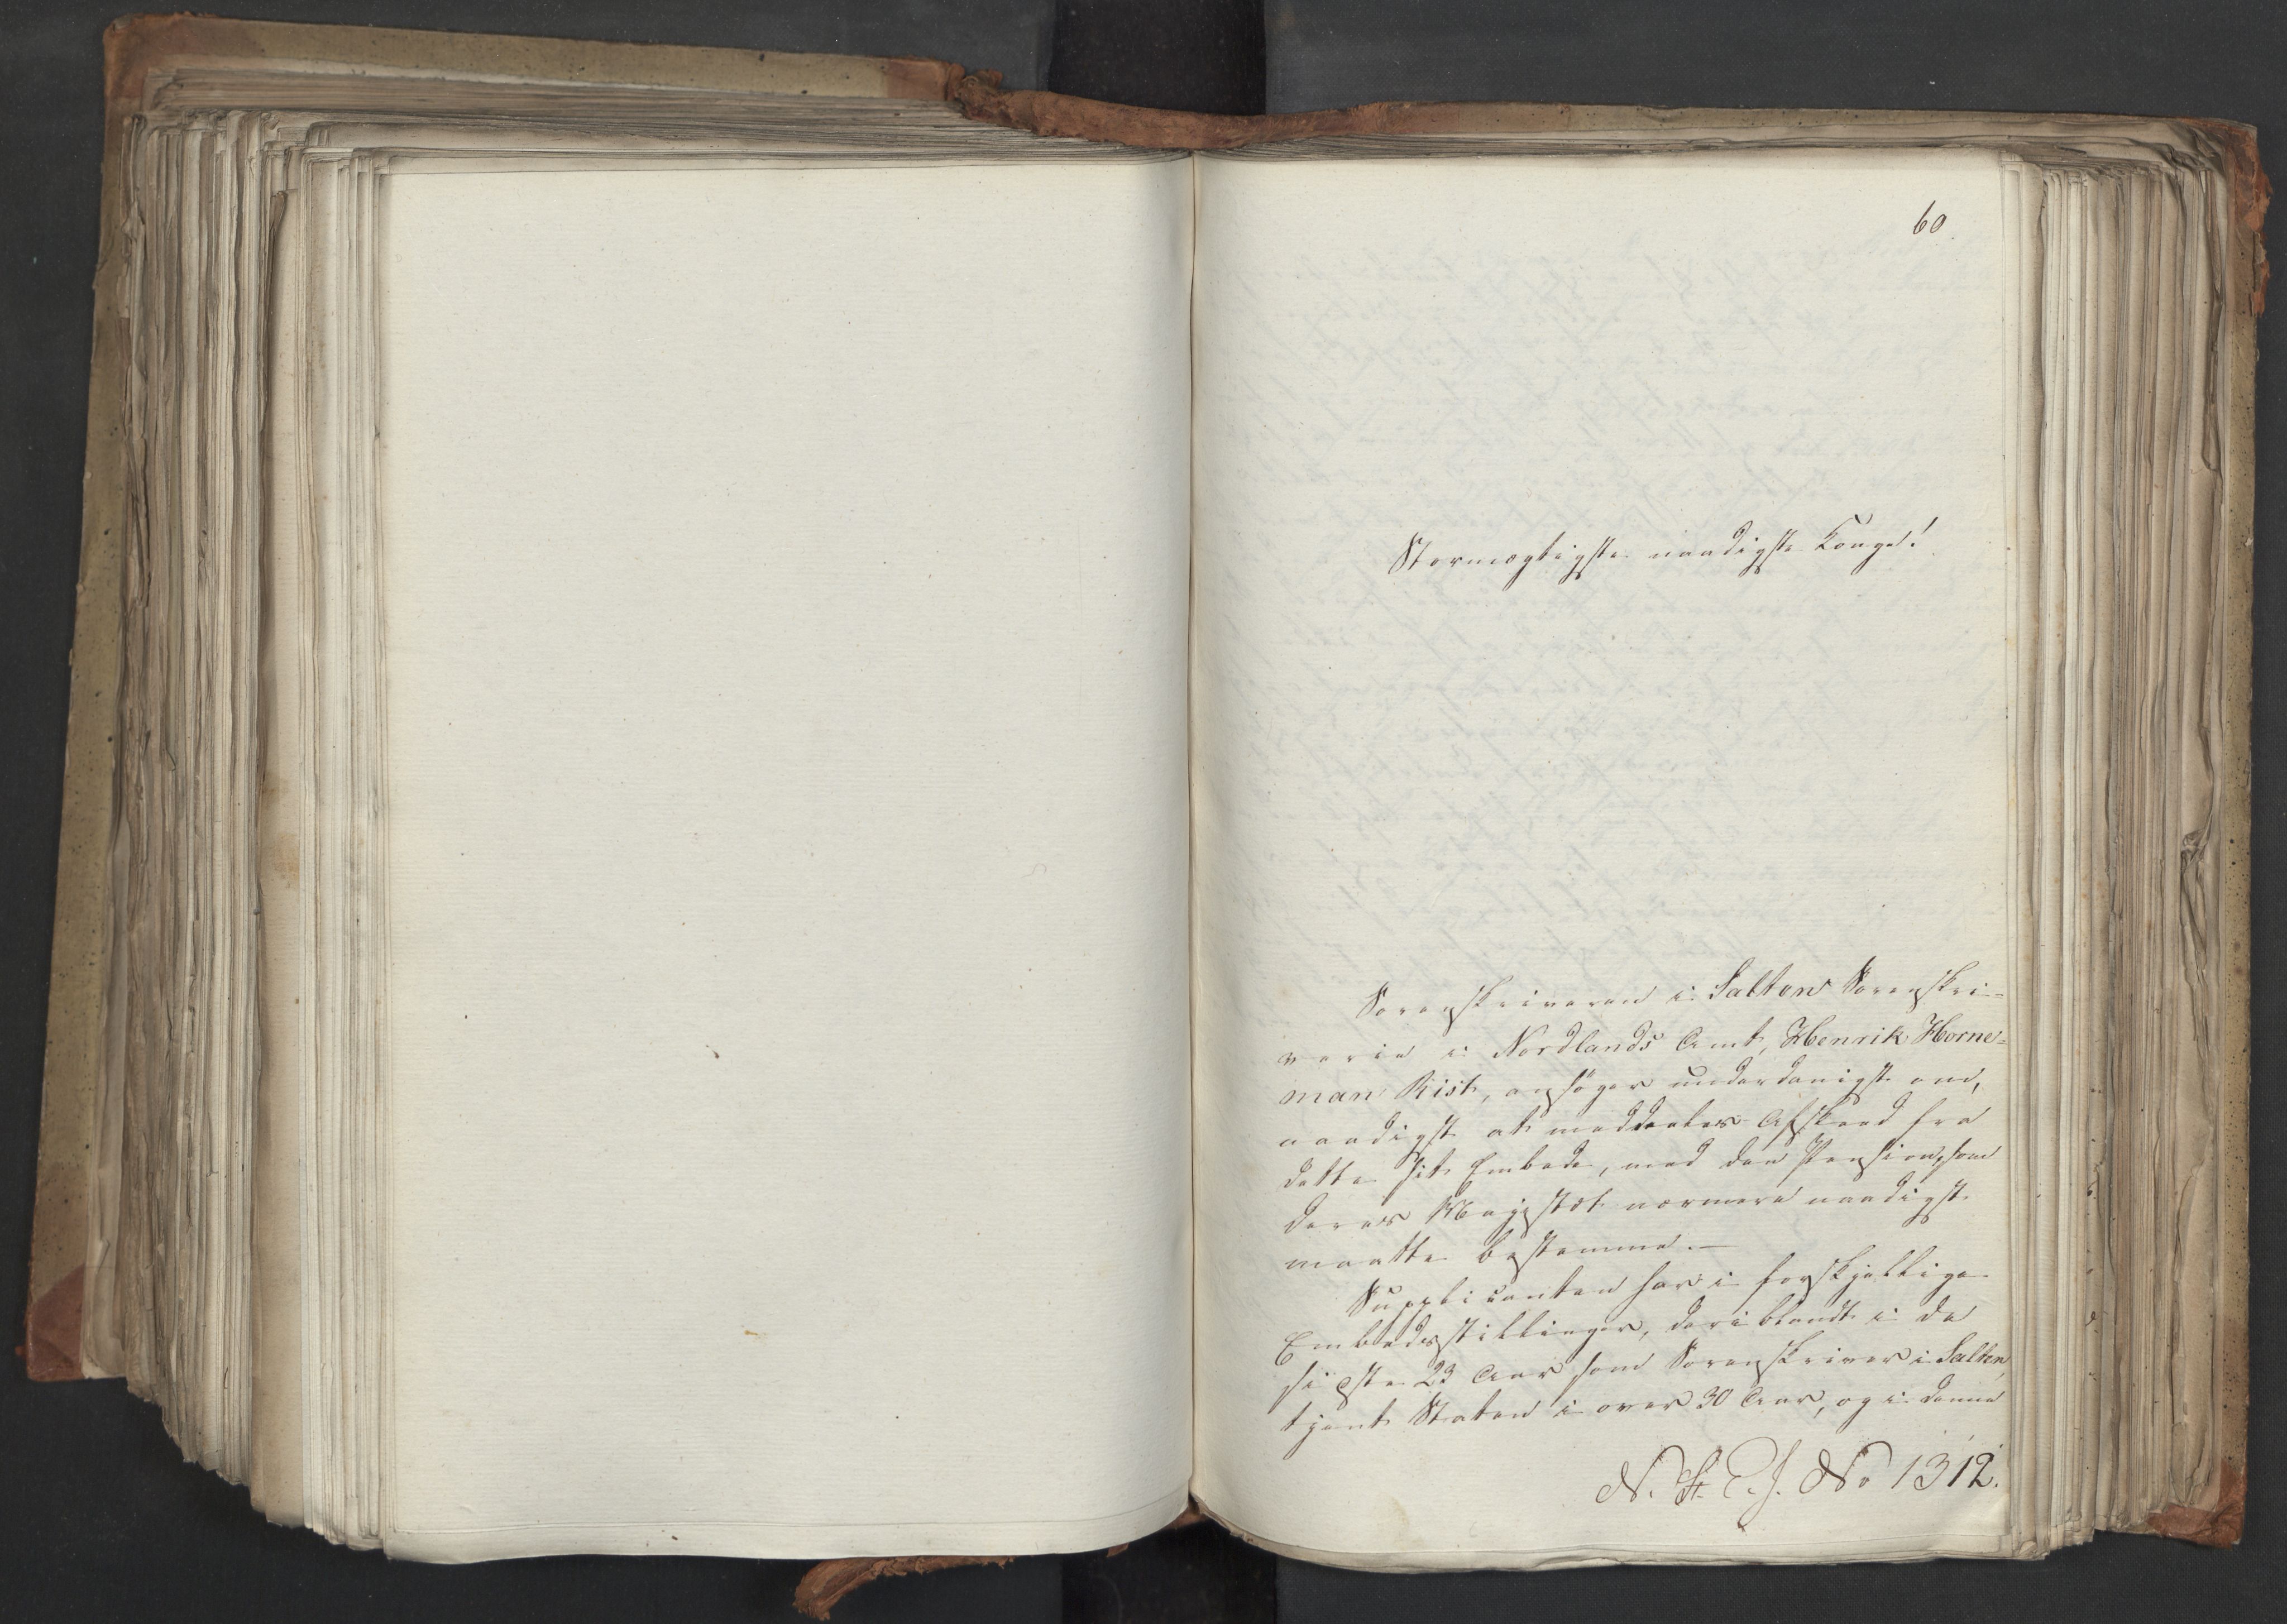 60.
Stormægtigste naadigste Konge!
Sorenskriveren i Saltens Sorenskri-
verie i Nordlands Amt, Henrik Horne-
man Rist, ansøger underdanigst om,
naadigst at meddeeles Afskeed fra
dette sit Embede, med den Pension, som
Deres Majestæt nærmere naadigst
maatte bestemme.—
Supplicanten har i forskjellige
Embedsstillinger, deriblandt i de
sidste 23 Aar som Sorenskriver i Salten,
tjent Staten i over 30 Aar, og i denne
N. St. E. J. No 1312.